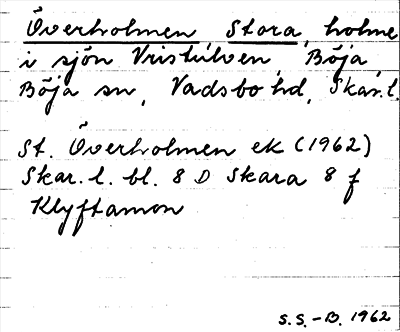 Överholmen, Stora, holme
i sjön Vristulven, Böja,
Böja sn, Vadsbo hd, Skar.l.
St. Överholmen ek (1962)
Skar. l. bl. 8 D Skara 8 f
Klyftamon
S.S. - B. 1962